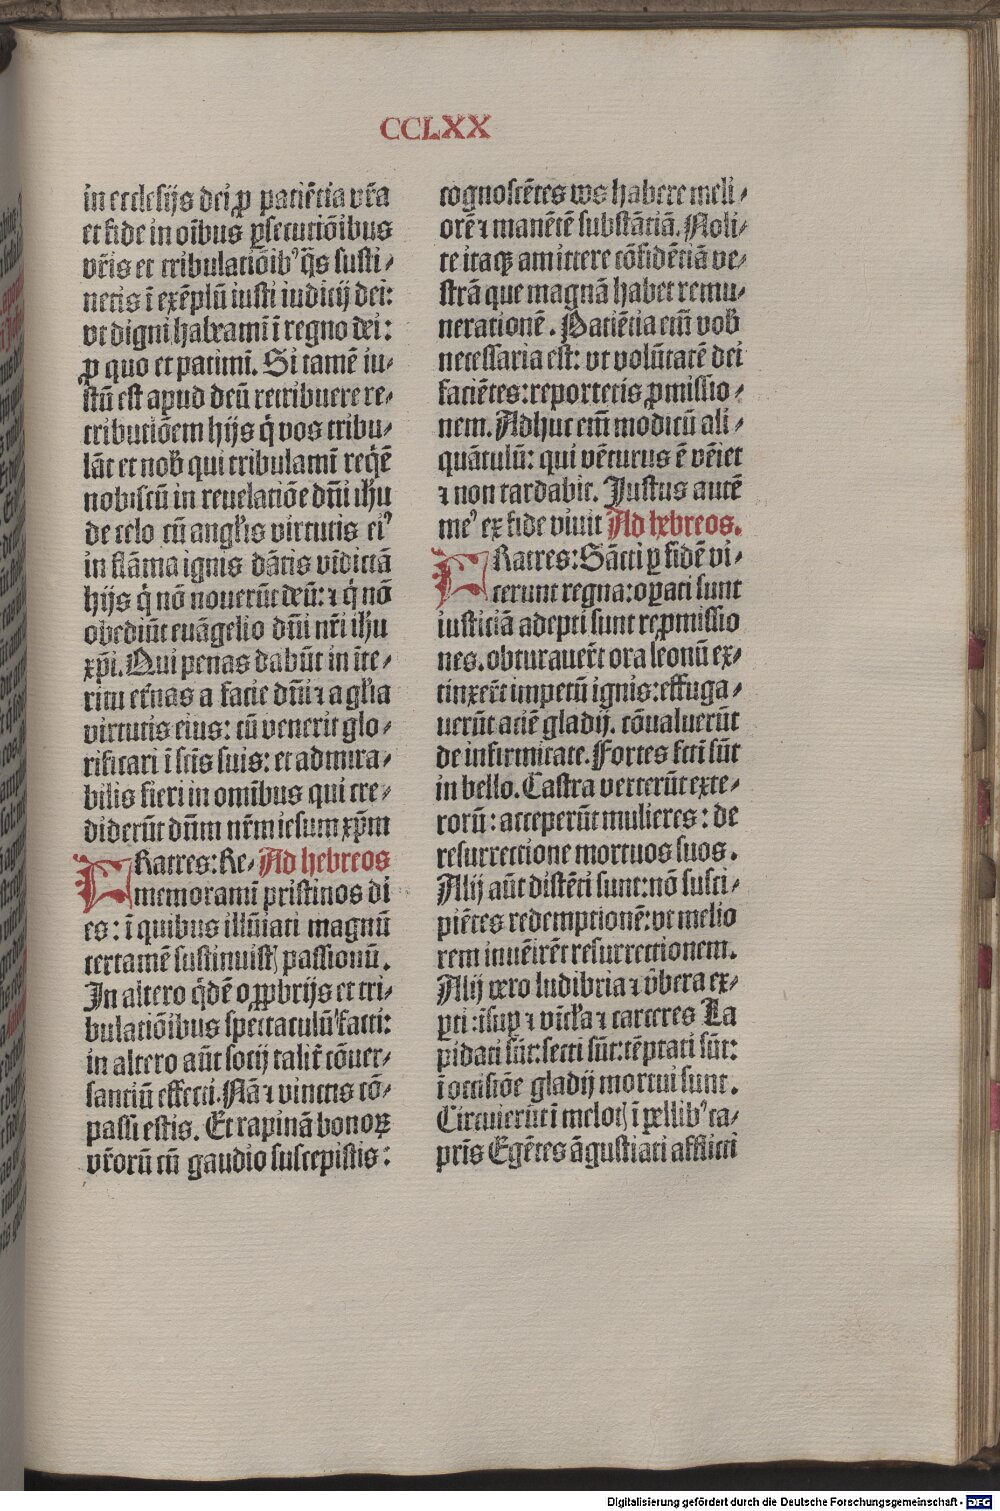 CCLXX
in ecclesijs dei ꝓ patiẽtia vr̃a
et fide in oĩbus ꝑsecutiõibus
vr̃is et tribulatiõibꝰ q̃s susti⸗
netis ĩ exẽplũ iusti iudicij dei:
vt digni habeamĩ ĩ regno dei:
ꝓ quo et patimĩ. Si tamẽ iu⸗
stũ est apud deũ retribuere re⸗
tributiõem hijs q̇ vos tribu⸗
lãt et nob̃ qui tribulamĩ req̇ẽ
nobiscũ in reuelatiõe dñi ihũ
de celo cũ angl̃is virtutis eiꝰ
in flãma ignis dãtis vĩdictã
hijs q̇ nõ nouerũt deũ: ⁊ q̇ nõ
obediũt euãgelio dñi nr̃i ihũ
xp̃i. Qui penas dabũt in ĩte⸗
ritu et̃nas a facie dñi ⁊ a gl̃ia
virtutis eius: cũ venerit glo⸗
rificari ĩ sc̃is suis: et admira⸗
bilis fieri in omĩbus qui cre⸗
diderũt dñm nr̃m iesum xp̃m
FRatres: Re⸗ Ad hebreos
memoramĩ pristinos di
es: ĩ quibus illũiati magnũ
certamẽ sustinuistꝭ passionũ.
In altero q̇dẽ oꝓpbrijs et tri⸗
bulatiõibus spectaculũ facti:
in altero aũt socij talit̃ cõuer⸗
santiũ effecti. Nã ⁊ vinctis cõ⸗
passi estis. Et rapinã bonoꝝ
vr̃orũ cũ gaudio suscepistis:
cognoscẽtes vos habere meli⸗
orẽ ⁊ manẽtẽ substãtiã. Noli⸗
te itaqꝫ amittere cõfidẽtiã ve⸗
strã que magnã habet remu⸗
nerationẽ. Patiẽtia eñi vob̃
necessaria est: vt volũtatẽ dei
faciẽtes: reportetis ꝓmissio⸗
nem. Adhuc eñi modicũ ali⸗
quãtulũ: qui vẽturus ẽ vẽiet
⁊ non tardabit. Justus autẽ
meꝰ ex fide viuit Ad hebreos.
FRatres: Sãcti ꝑ fidẽ vi⸗
cerunt regna: oꝑati sunt
iusticiã adepti sunt reꝓmissio
nes. obturauer̃t ora leonũ ex⸗
tinxer̃t impetũ ignis: effuga⸗
uerũt aciẽ gladij. cõualuerũt
de infirmitate. Fortes fc̃ti sũt
in bello. Castra verterũt exte⸗
rorũ: acceperũt mulieres: de
resurrectione mortuos suos.
Alij aũt distẽti sunt: nõ susci⸗
piẽtes redemptionẽ: vt melio
rem inuẽirẽt resurrectionem.
Alij vero ludibria ⁊ v̾bera ex⸗
ꝑti: ĩsuꝑ ⁊ vĩcl̃a ⁊ carceres La
pidati sũt: secti sũt: tẽptati sũt:
ĩ occisiõe gladij mortui sunt.
Circuierũt ĩ melotꝭ ĩ pellibꝰ ca⸗
pris Egẽtes ãgustiati afflicti
Digitalisierung gefördert durch die Deutsche Forschungsgemeinschaft - DFG